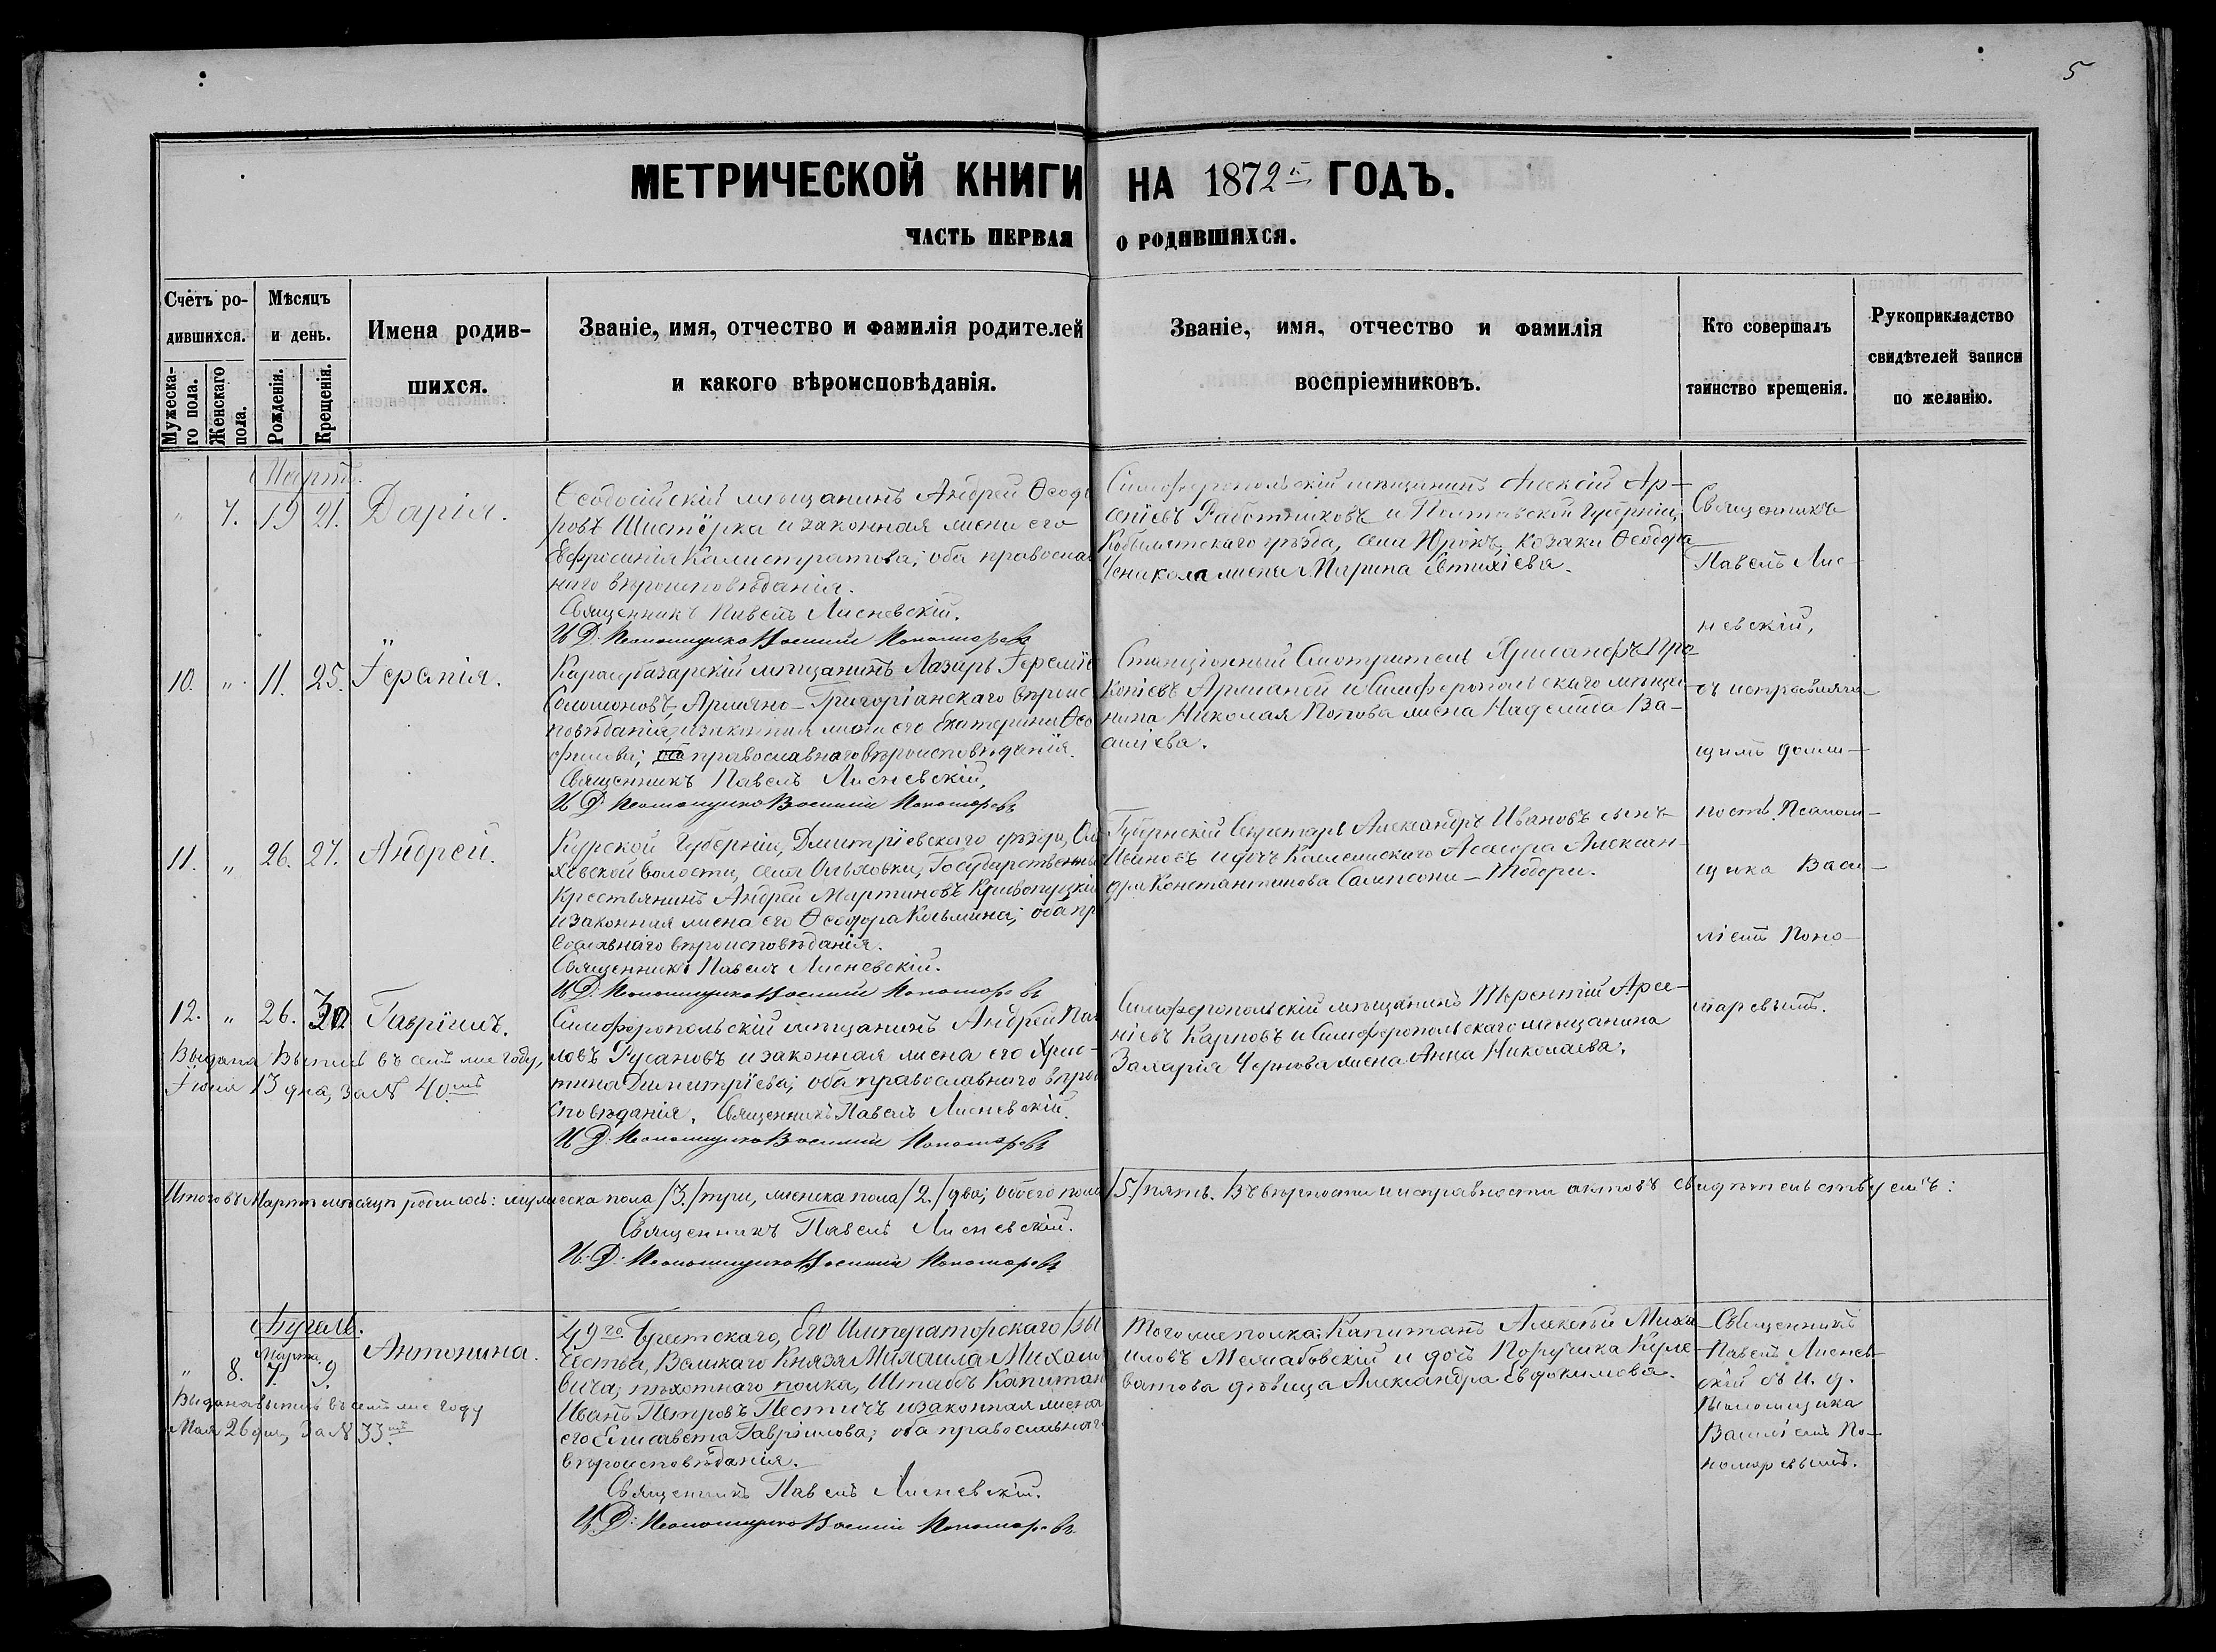 5
МЕТРИЧЕСКОЙ КНИГИ НА 1872й ГОДЪ.
ЧАСТЬ ПЕРВАЯ О РОДИВШИХСЯ.
Счетъ ро-
дившихся.
Мужеска-
го пола.
Женскаго
пола.
Мѣсяцъ
и день.
Рожденія.
Крещенія.
Имена родив-
шихся.
Званіе, имя, отчество и фамилія родителей
и какого вѣроисповѣданія.
Званіе, имя, отчество и фамилія
воспріемниковъ.
Кто совершалъ
таинство крещенія.
Рукоприкладство
свидѣтелей записи
по желанію.
Мартъ.
" 7. 19 21. Дарія.
Ѳеодосійскій мѣщанинъ Андрей Ѳеодо
ровъ Шистёрка и законная жена его
Евфросинія Калистратова; оба православ
наго вѣроисповѣданія.
Священникъ Павелъ Лисневскій.
И. Д. Псаломщика Василій Пономаревъ
Симферопольскій мѣщанинъ Алексій Ар-
сеніевъ Работниковъ и Полтавской Губерніи,
Кобелятскаго уѣзда, села Юрокъ, козака Ѳеодора
жена Марина Евтихіева.
Священникъ
Павелъ Лис-
невскій,
съ исправляю
щимъ долж-
ность Псалом-
щика Васи-
ліемъ Поно-
маревымъ.
"
10. " 11. 25. Іеранія.
Карасубазарскій мѣщанинъ Лазарь Іереміе
Соломоновъ, Армяно-Григоріанскаго вѣроис
повѣданія, и законная жена его Екатерина Ѳео
филова; православнаго вѣроисповѣданія.
Священникъ Павелъ Лисневскій,
И. Д. Псаломщика Василій Пономаревъ
Станціонный Смотритель Про-
копіевъ и Симферопольскаго мѣща-
нина Николая Попова жена Надежда Ва-
силіева.
11. " 26. 27. Андрей.
Курской Губерніи, Дмитріевскаго уѣзда, Оль
ховской волости, села Ольховки, Государственный
Крестьянинъ Андрей Мартиновъ
и законная жена его Ѳеодора Козьмина; оба пра
вославнаго вѣроисповѣданія.
Священникъ Павелъ Лисневскій.
И. Д. Псаломщика Василій Пономаревъ
Губернскій Секретарь Александръ Ивановъ сынъ
Ивановъ и дочь Коллежскаго Асесора Алексан-
дра Константинова
12. " 26. 30 Гавріилъ.
Выдана Выпись въ семъ же году,
Іюня 13 дня, за № 40мъ
Симферопольскій мѣщанинъ Андрей Пав
ловъ Русановъ и законная жена его Хрис-
тина Димитріева; оба православнаго вѣрои
сповѣданія. Священникъ Павелъ Лисневскій.
И. Д. Псаломщика Василій Пономаревъ
Симферопольскій мѣщанинъ Терентій Арсе-
ніевъ Карповъ и Симферопольскаго мѣщанина
Захарія Чернова жена Анна Николаева.
Итого въ Мартѣ мѣсяцѣ родилось: мужеска пола /3./ три, женска пола /2./ два; обоего пола /5./ пять. Въ вѣрности и исправности актовъ свидѣтельствуемъ:
Священникъ Павелъ Лисневскій.
И. Д. Псаломщика Василій Пономаревъ
Апрель.
Марта.
" 8. 7. 9. Антонина.
Выдана выпись въ семъ же году
Мая 26 дня, за № 33мъ
49го Брестскаго, Его Императорскаго Вы
чества, Великаго Князя Михаила Михаил
вича, пѣхотнаго полка, Штабсъ Капитан
Иванъ Петровъ Пестичъ и законная жена
его Елисавета Гавріилова; оба православнаго
вѣроисповѣданія.
Священникъ Павелъ Лисневскій.
И. Д. Псаломщика Василій Пономаревъ.
Того же полка: Капитанъ Алексѣй Миха
иловъ и дочь Поручика
дѣвица Александра Евдокимова.
Священникъ
Павелъ Лиснев-
скій съ И. д.
Псаломщика
Василіемъ По-
номаревымъ.